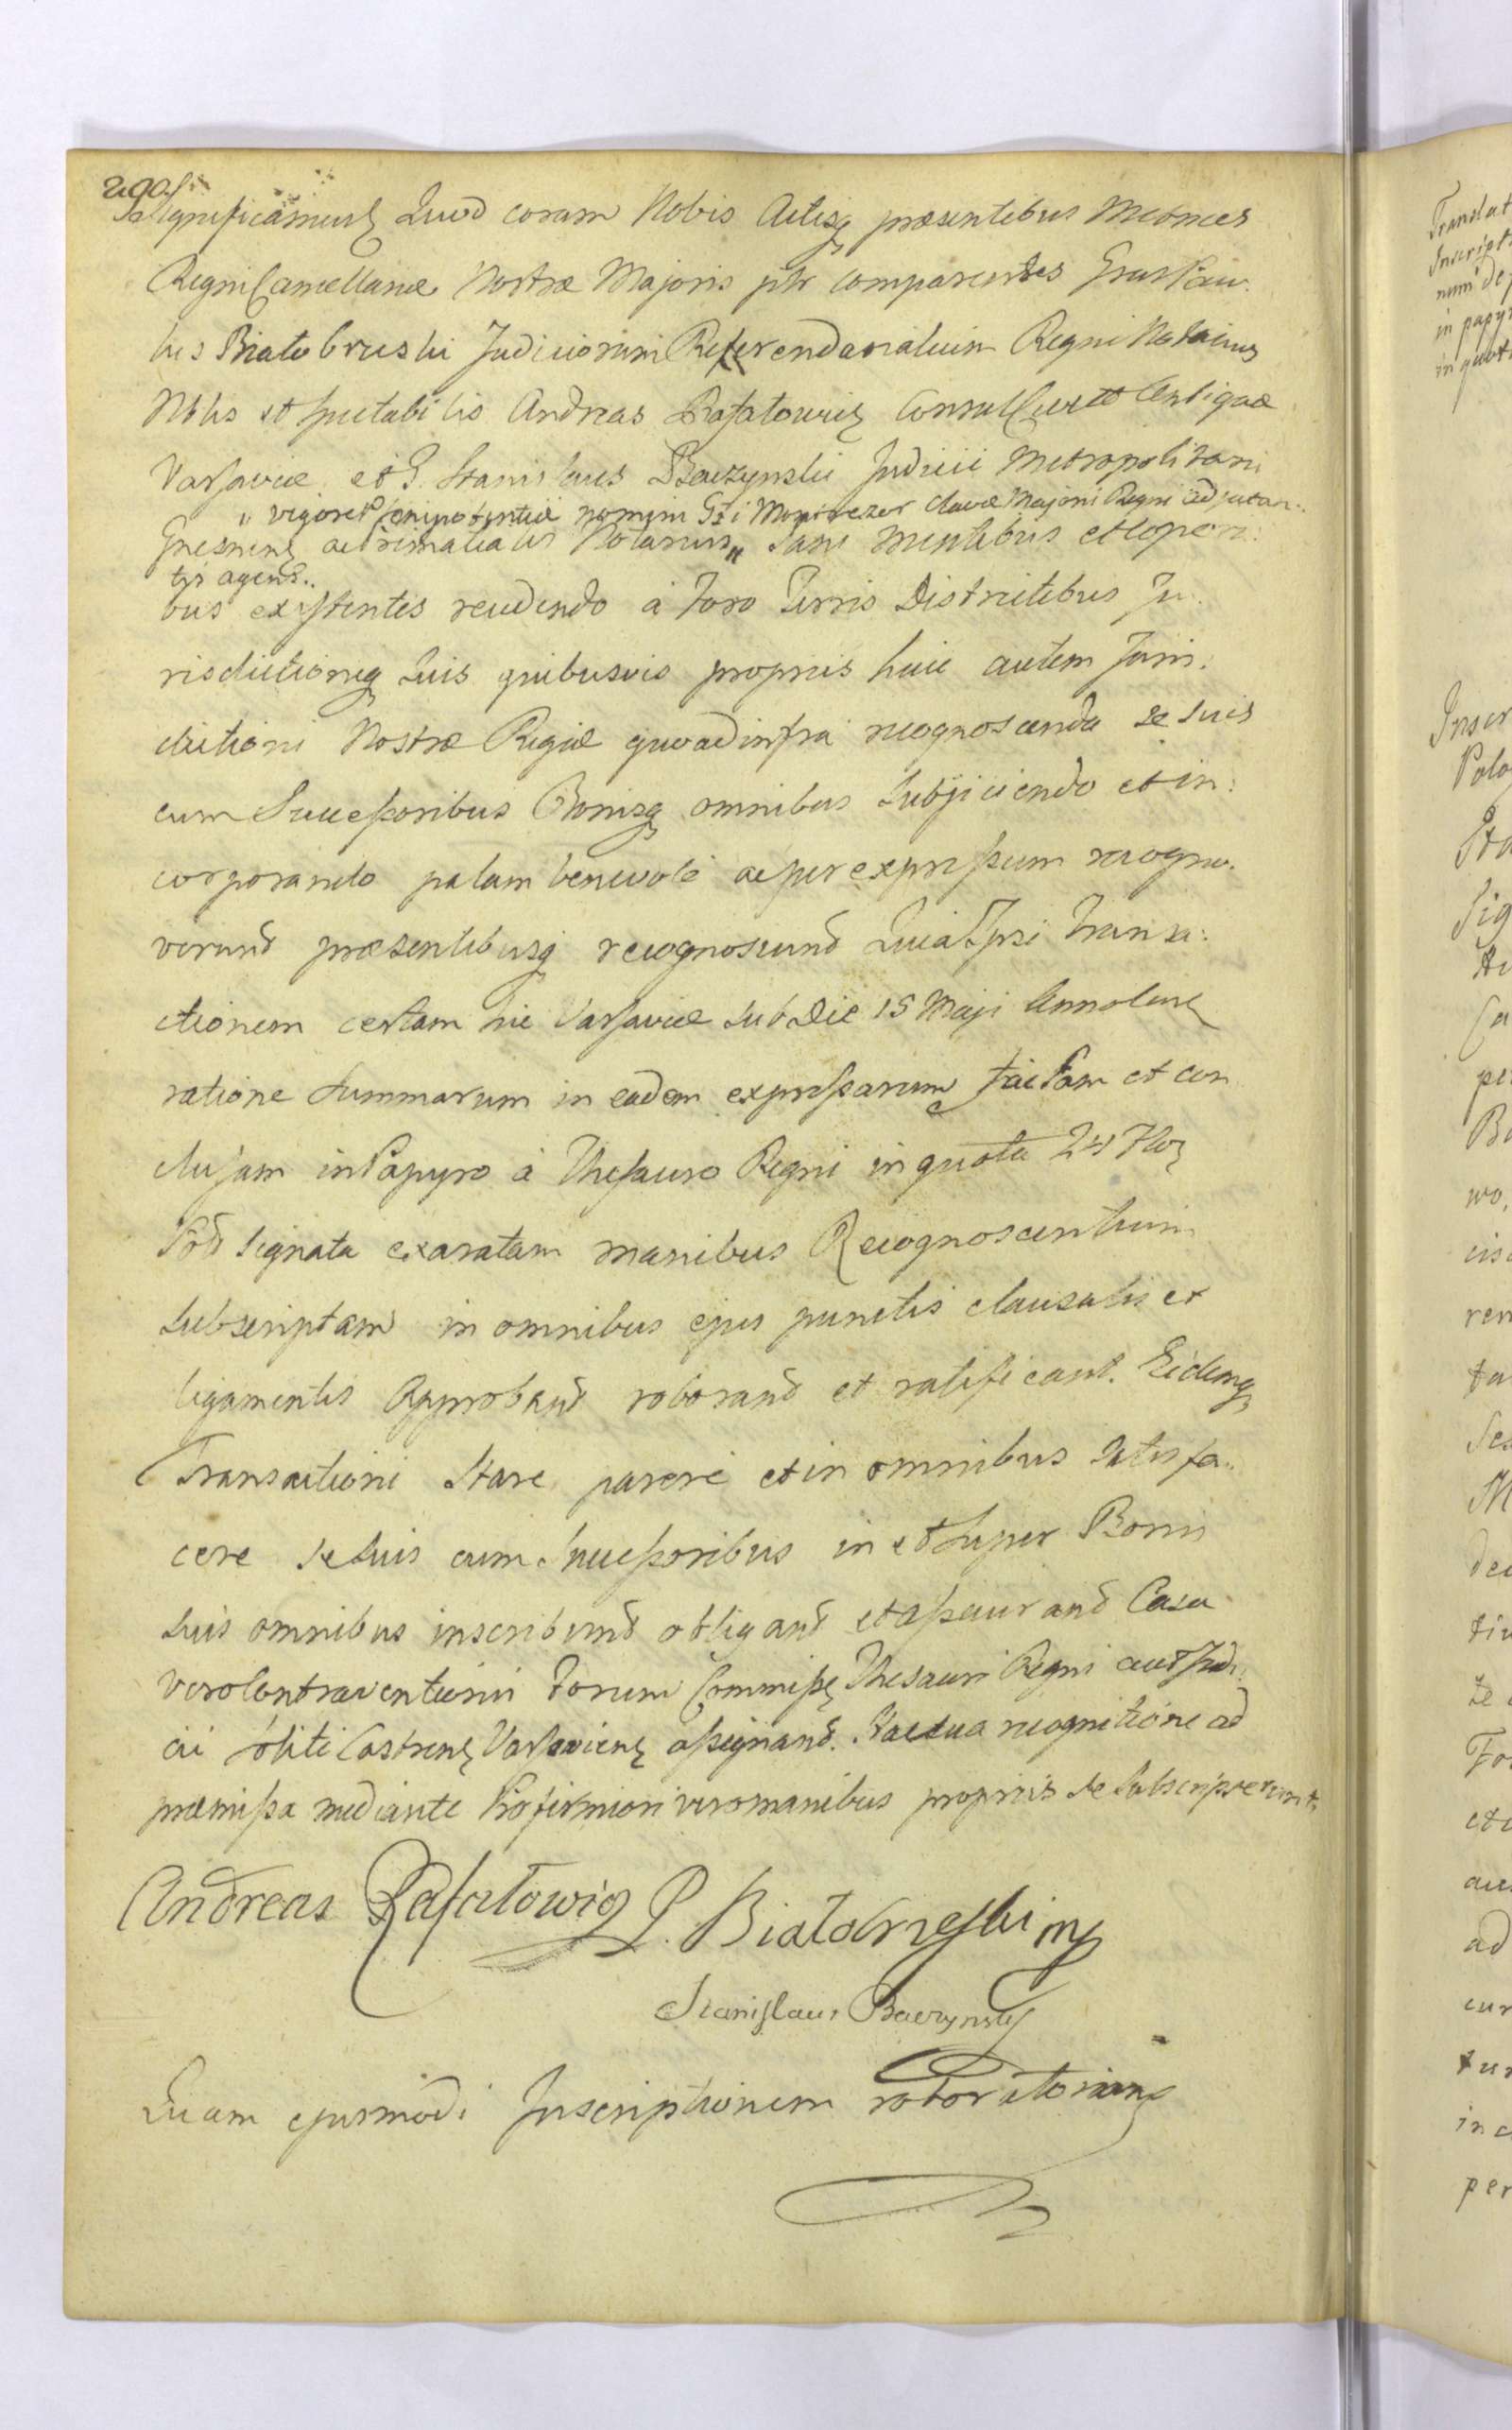 290
Significamus Quod coram Nobis Actisq præsentibus Metrices
Regni Cancellariæ Nostræ Majoris pltr comparentes Grus Pau-
lus Białobrzeski Judiciorum Referendarialium Regni Notarius
Nblis et spectabilis Andreas Rafałowicz Consul Cuittis Antiquæ
Varsaviæ et G. Stanislaus Baczynski Judicii Metropolitani
„ vigore Plenipotentiæ nomine Gsi Montrezor Clavæ Majoris Regni adjutan..
Gnesnens ac Primatialis Notarius „ Sani mentibus et corpori-
tis agens..
bus existentes recedendo à Foro Terris Districtibus Ju-
risdictioneq suis quibusvis propriis huic autem Juris-
dictioni Nostræ Regiæ quoad infra recognoscenda se suis
cum Successoribus Bonisq omnibus subjiciendo et in:
corporando palam benevole ac per expressum recogno-
verund præsentibusq recognoscund Quia Ipsi Transa:
ctionem certam hic Varsaviæ sub Die 15 Maji Anno cur
ratione Summarum in eadem expressarum factam et con
clusam in Papyro à Thesauro Regni in quota 24 Flor
Pol signata exaratam manibus Recognoscentium
subscriptam in omnibus ejus punctis clausulis et
ligamentis Approband roborand et ratificand. Eidemq
Transactioni Stare parere et in omnibus satisfa..
cere se suis cum Successoribus in et super Bonis
suis omnibus inscribund obligand et assecurand Casu
vero Contraventionis Forum Commissis Thesauri Regni aut Judi
cii sbliti Castrens Varsaviens assignand. Hac sua recognitione ad
præmissa mediante Pro firmiori vero manibus propriis se subscripserunt.
Andreas Rafałowicz P. Białobrzeski mp
Stanislaus Baczynski
Quam ejusmodi Inscriptionem roboratoriam